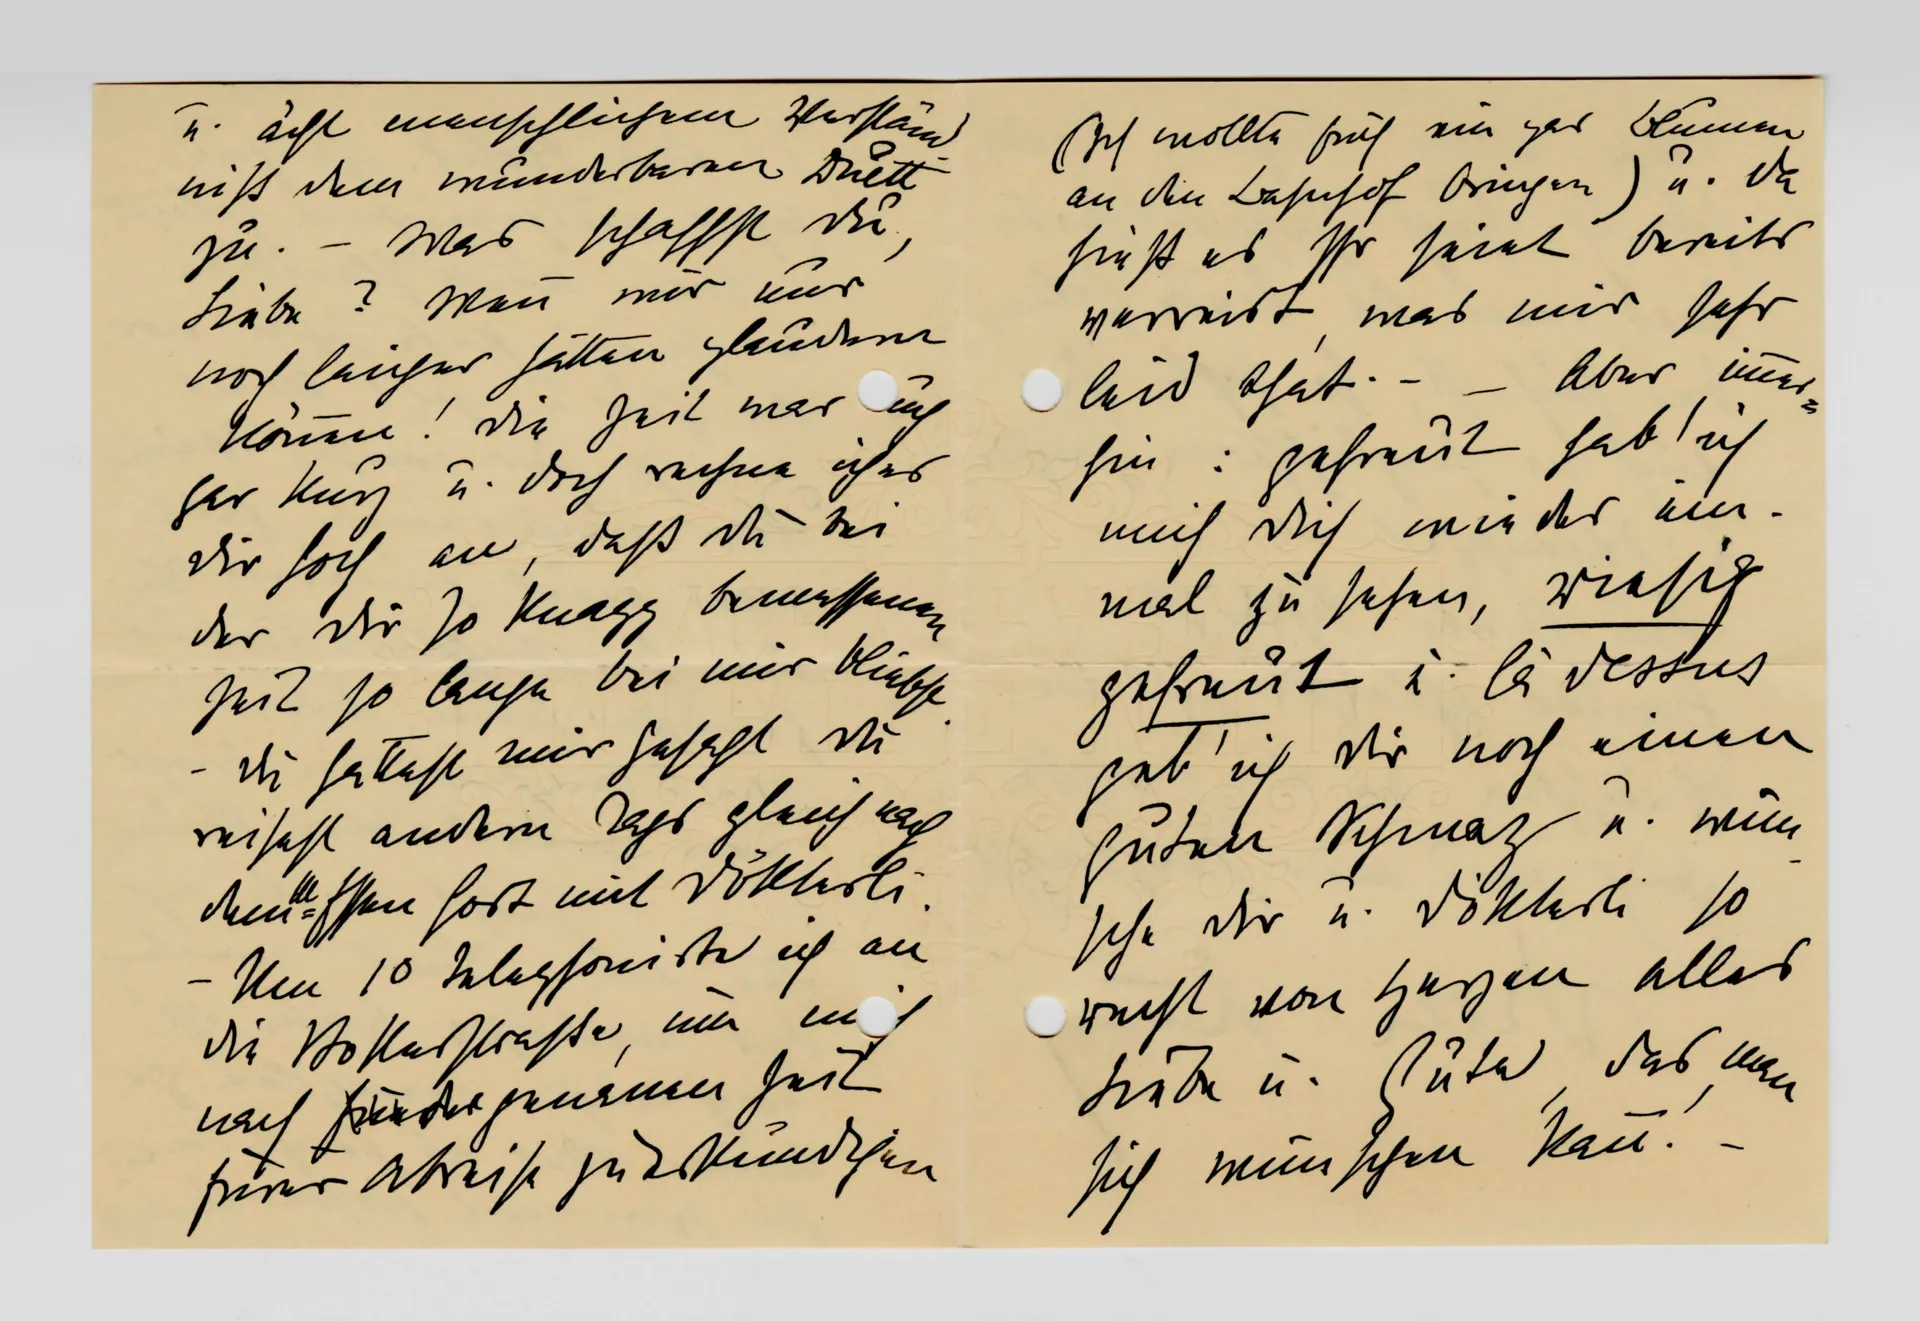 u. ächt menschlichem Verständ
niß dem wunderbaren Duett
zu. – Was schaffst du,
Liebe? Wenn wir nur
noch länger hätten plaudern
können! Die Zeit war auch
gar kurz u. doch rechne ich es
dir hoch an, daß du bei
der dir so knapp bemessenen
Zeit so lange bei mir bliebst.
– Du hattest mir gesagt du
reisest andern Tags gleich nach
dem Essen fort mit Dökterli.
– Um 10 telephonirte ich an
die Volkerstraße, um mich
nach genauen Zeit
Eurer Abreise zu erkundigen
(Ich wollte Euch ein paar Blumen
an den Bahnhof bringen) u. da
hieß es Ihr seiet bereits
verreist, was mir sehr
leid that. – – Aber immer=
hin: gefreut hab' ich
mich dich wieder ein-
mal zu sehen, riesig
gefreut u. là dessus
geb' ich dir noch einen
guten Schmaz u. wün-
sche dir u. Dökterli so
recht von Herzen alles
Liebe u. Gute, das man
sich wünschen kann! –